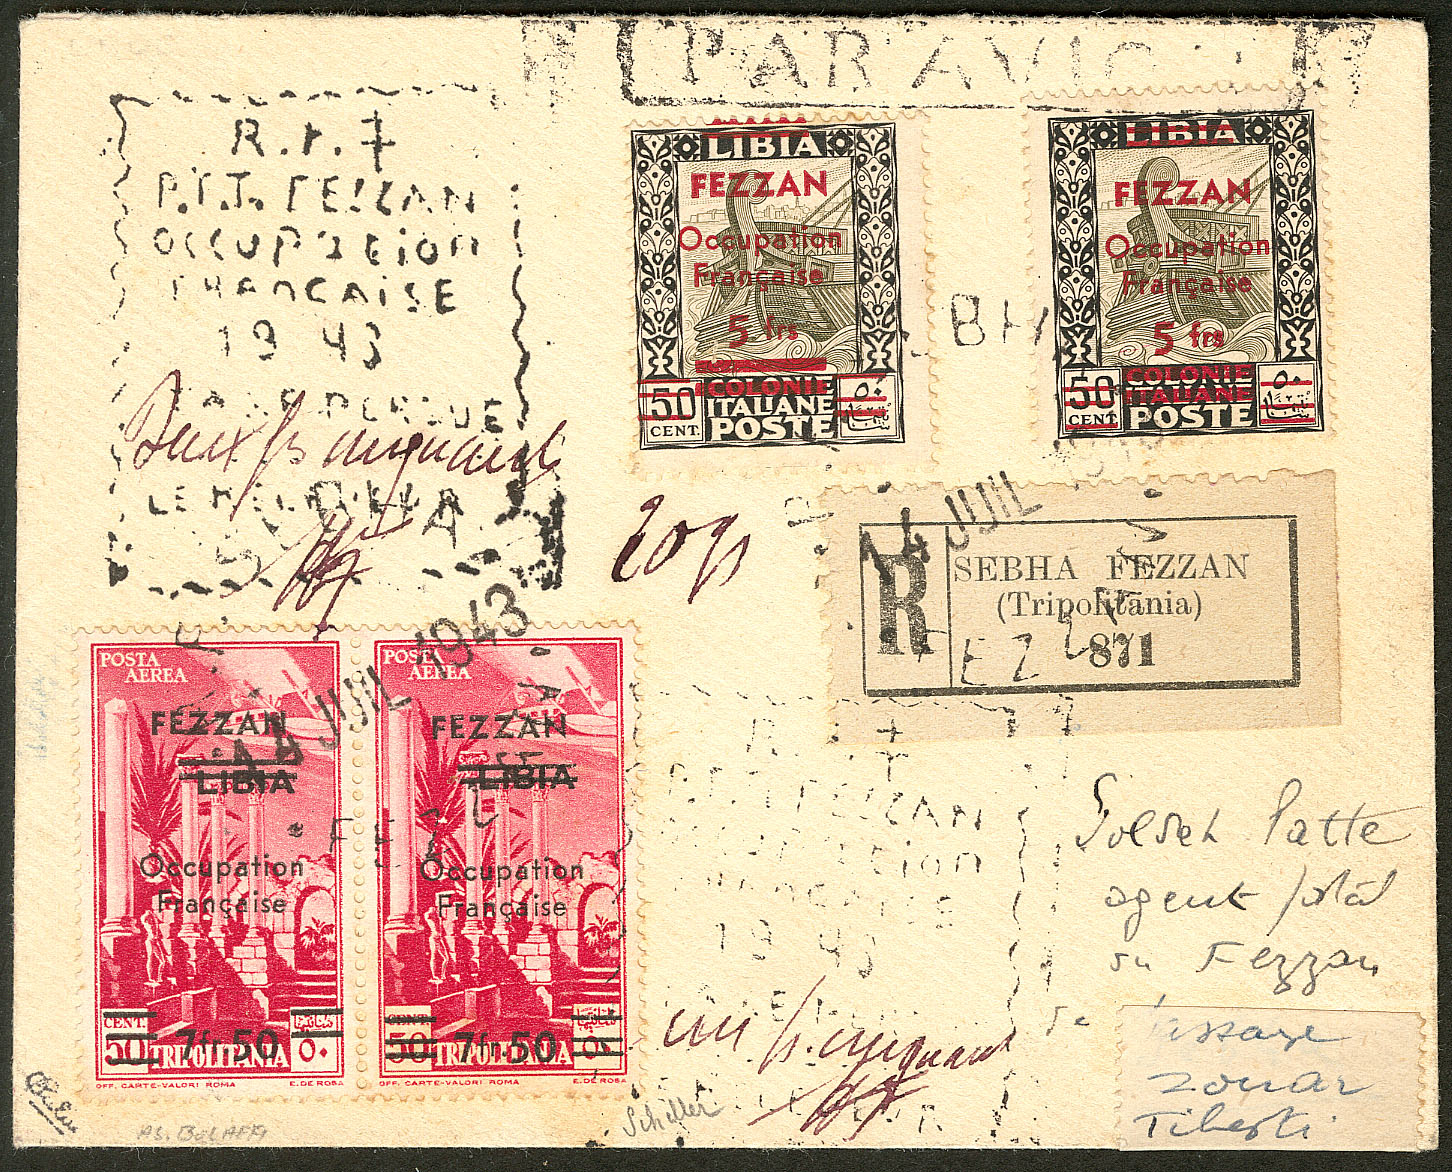 PAR AVIO
R.F. 7
P.T.T. FEZZAN
Occupation
FRANCAISE
1943
Deux frs cinquante
SEBHA
14 JUIL 1943
FEZZ
20 frs
LIBIA
FEZZAN
Occupation
Française
5 frs
50
CENT.
COLONIE
ITALIANE
POSTE
٥٠
LIBIA
FEZZAN
Occupation
Française
5 frs
50
CENT.
COLONIE
ITALIANE
POSTE
٥٠
BHA
14 JUIL
R
SEBHA FEZZAN
(Tripolitania)
871
FEZZA
POSTA
AEREA
FEZZAN
LIBIA
Occupation
Française
CENT.
50
7fr.50
TRIPOLITANIA
٥٠
OFF. CARTE-VALORI ROMA
E. DE ROSA
POSTA
AEREA
FEZZAN
LIBIA
Occupation
Française
CENT.
50
7fr.50
TRIPOLITANIA
OFF. CARTE-VALORI ROMA
E. DE ROSA
P.T.T. FEZZAN
Occupation
FRANCAISE
1943
un fr. cinquante
Soldat Patte
agent postal
du Fezzan
de passage
Zouar
Tibesti
Schiller
AS. BOLAFFI